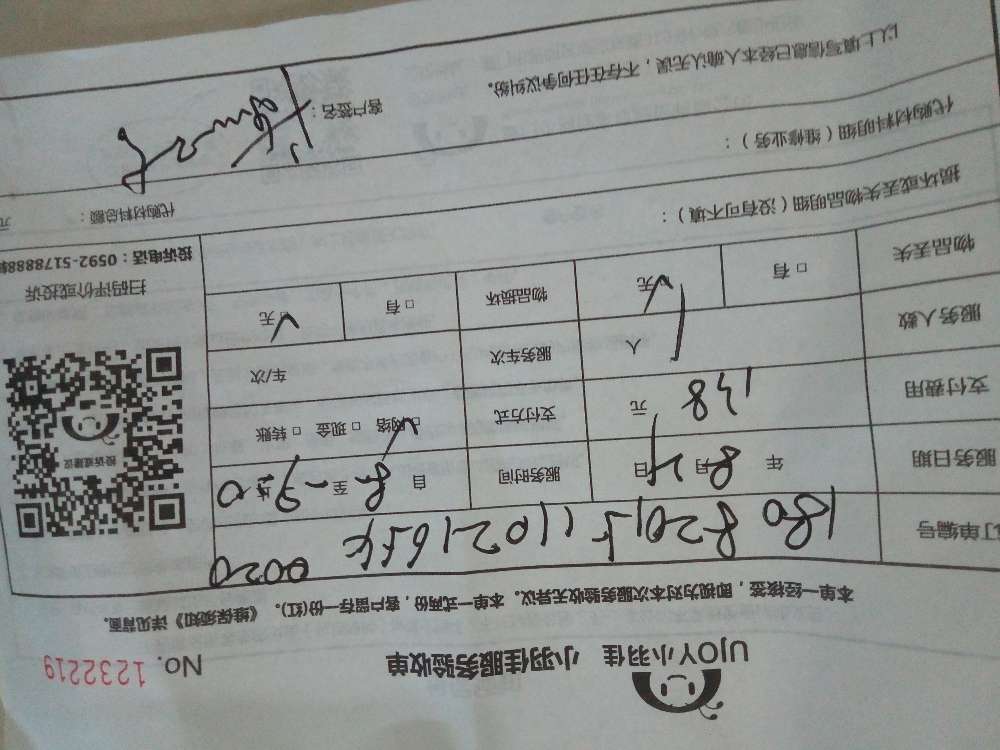 UJOY小羽佳 小羽佳服务验收单
No. 1232219
本单一经接签，即视为对本次服务验收无异议。本单一式两份，客户留存一份(红)。《维保须知》详见背面。
订单编号
服务日期 年 8月 日 服务时间 自 8 至
支付费用 138 元 支付方式 网络 □ 现金 □ 转账
服务人数 1 人 服务车次 车/次
物品丢失 □ 有 无 物品损坏 □ 有 无
投诉或建议
扫码评价或投诉
投诉电话：0592-5178888转
损坏或丢失物品明细（没有可不填）：
代购材料明细（维修业务）：
代购材料总额： 元
以上填写信息已经本人确认无误，不存在任何争议纠纷。
客户签名：